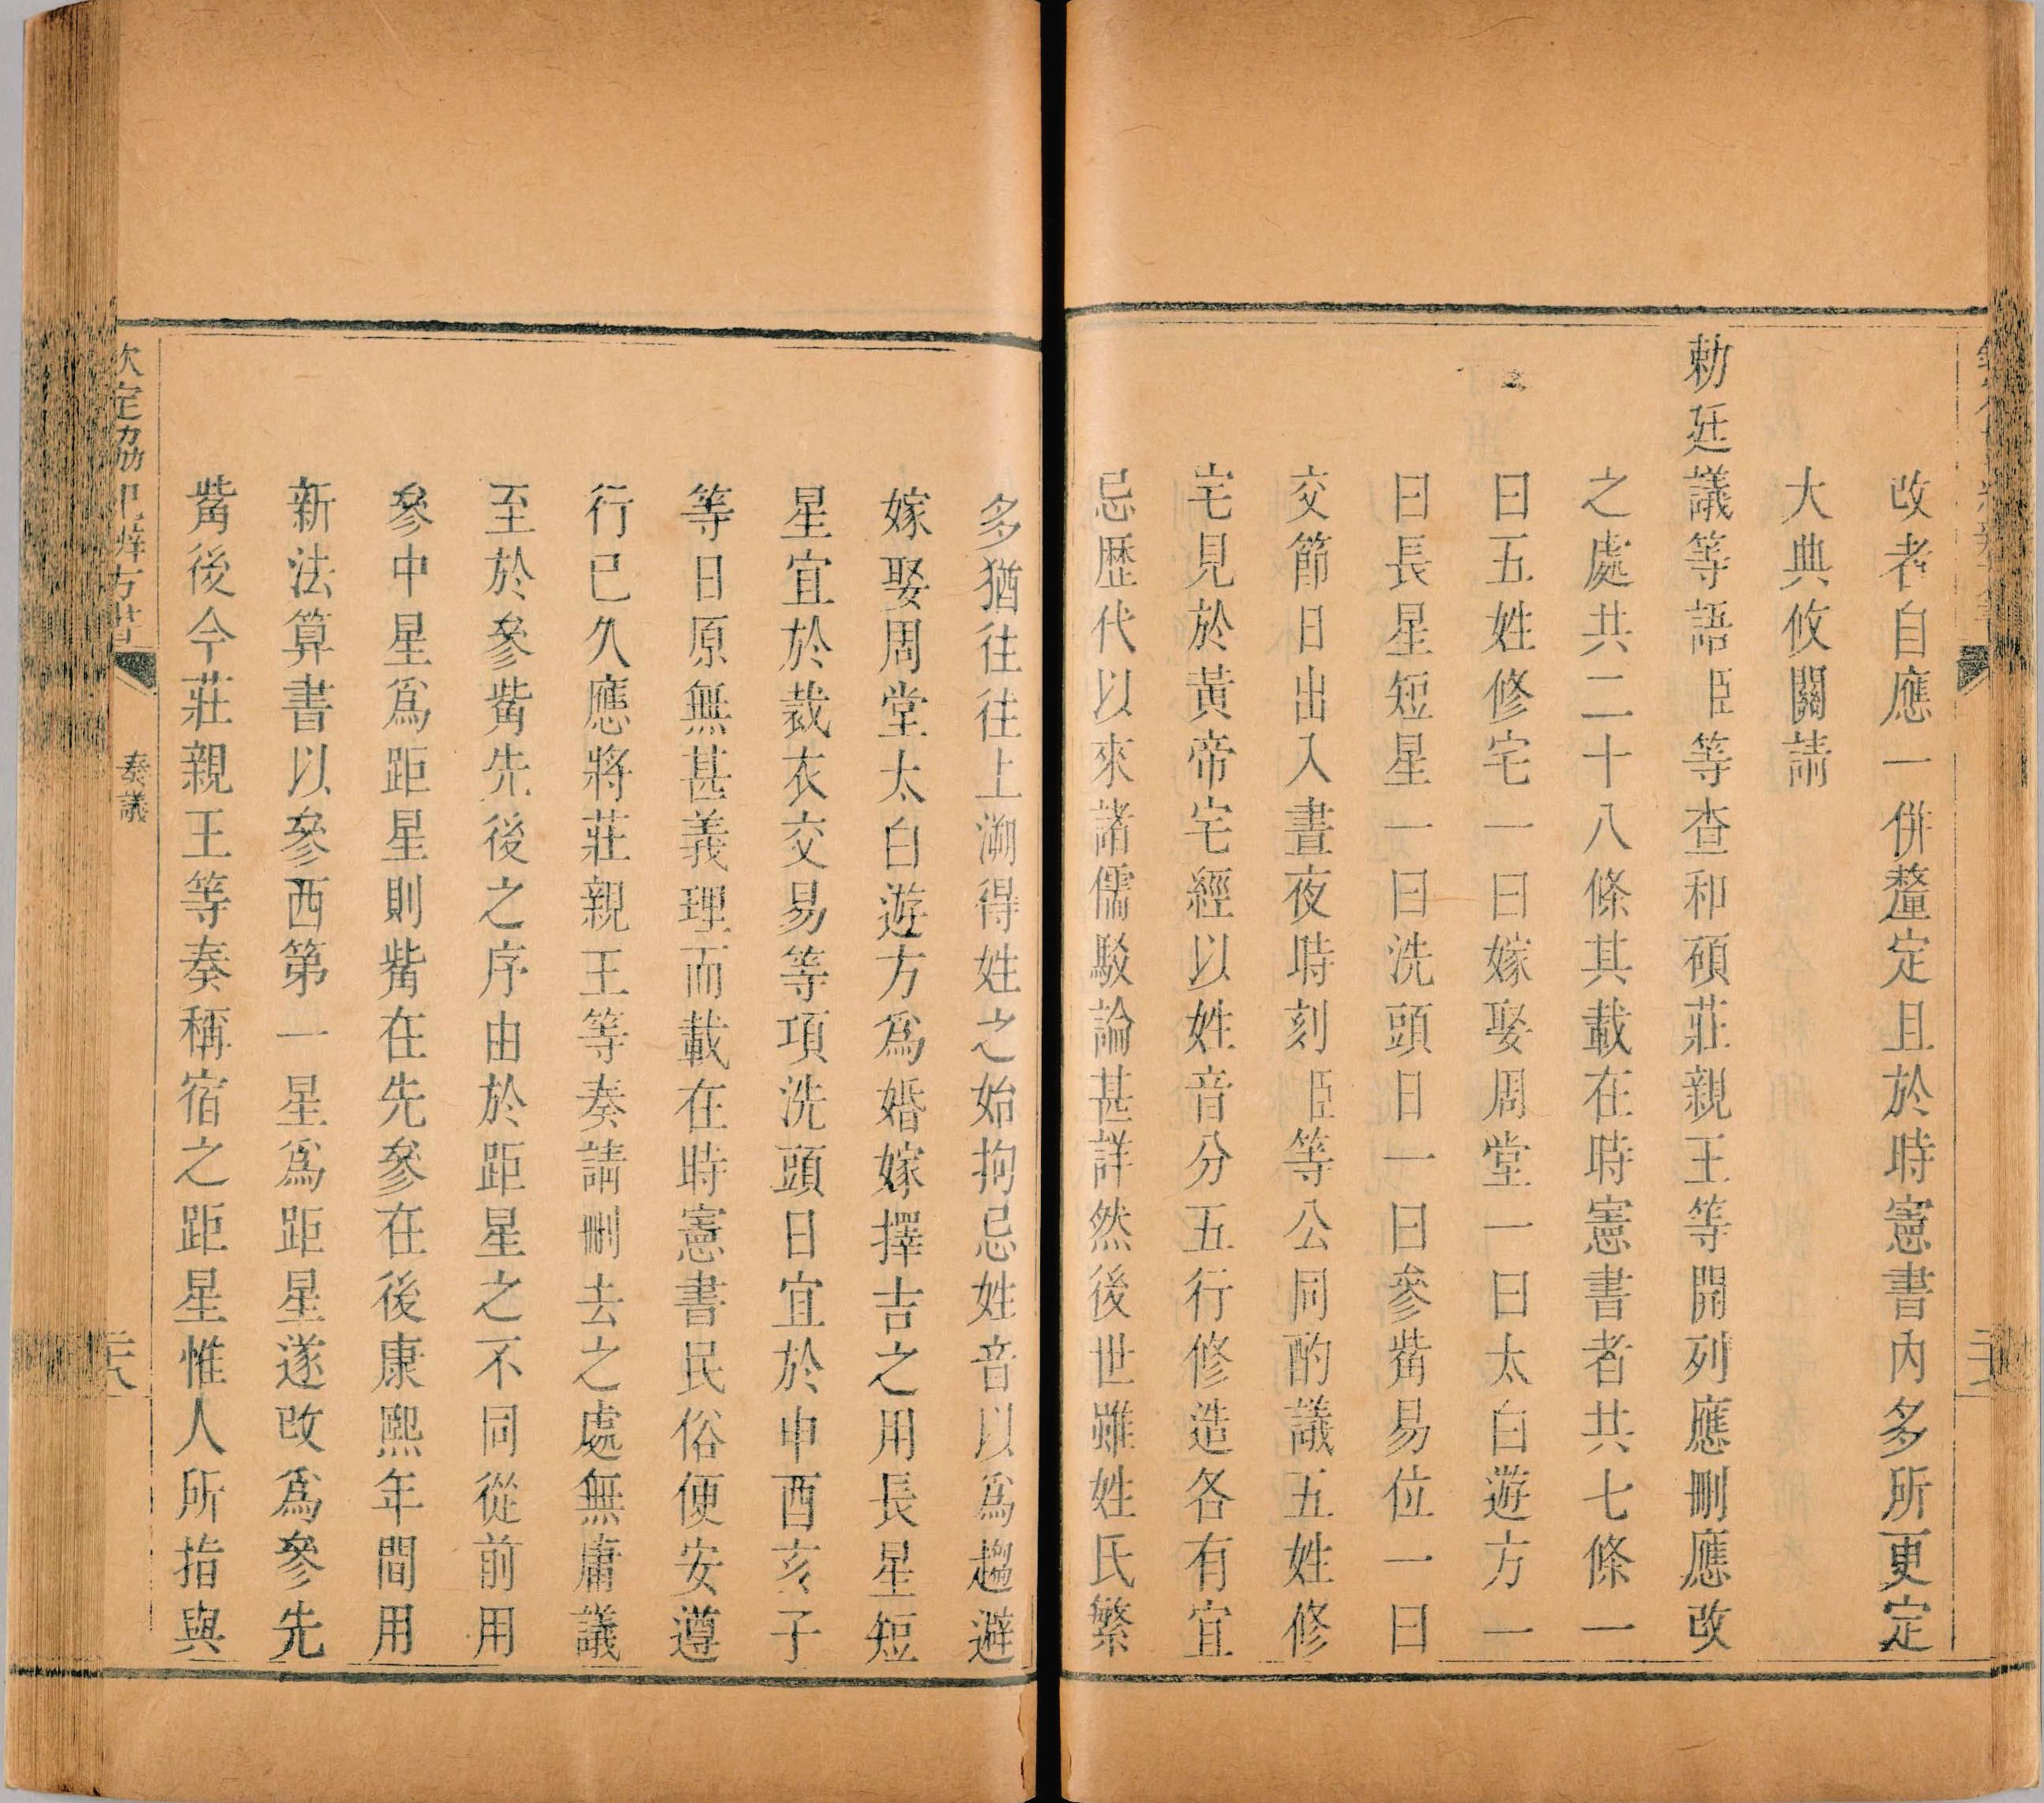 改者自應一併釐定且於時憲書內多所更定
大典攸關請
勅廷議等語臣等查和碩莊親王等開列應刪應改
之處共二十八條其載在時憲書者共七條一
曰五姓修宅一曰嫁娶周堂一曰太白遊方一
曰長星短星一曰洗頭日一曰參觜易位一曰
交節日出入晝夜時刻臣等公同酌議五姓修
宅見於黃帝宅經以姓音分五行修造各有宜
忌歷代以來諸儒駁論甚詳然後世雖姓氏繁
多猶往往上溯得姓之始拘忌姓音以爲趨避
嫁娶周堂太白遊方爲婚嫁擇吉之用長星短
星宜於裁衣交易等項洗頭日宜於申酉亥子
等日原無甚義理而載在時憲書民俗便安遵
行已久應將莊親王等奏請刪去之處無庸議
至於參觜先後之序由於距星之不同從前用
參中星爲距星則觜在先參在後康熙年間用
新法算書以參西第一星爲距星遂改爲參先
觜後今莊親王等奏稱宿之距星惟人所指與
欽定協紀辨方書
奏議